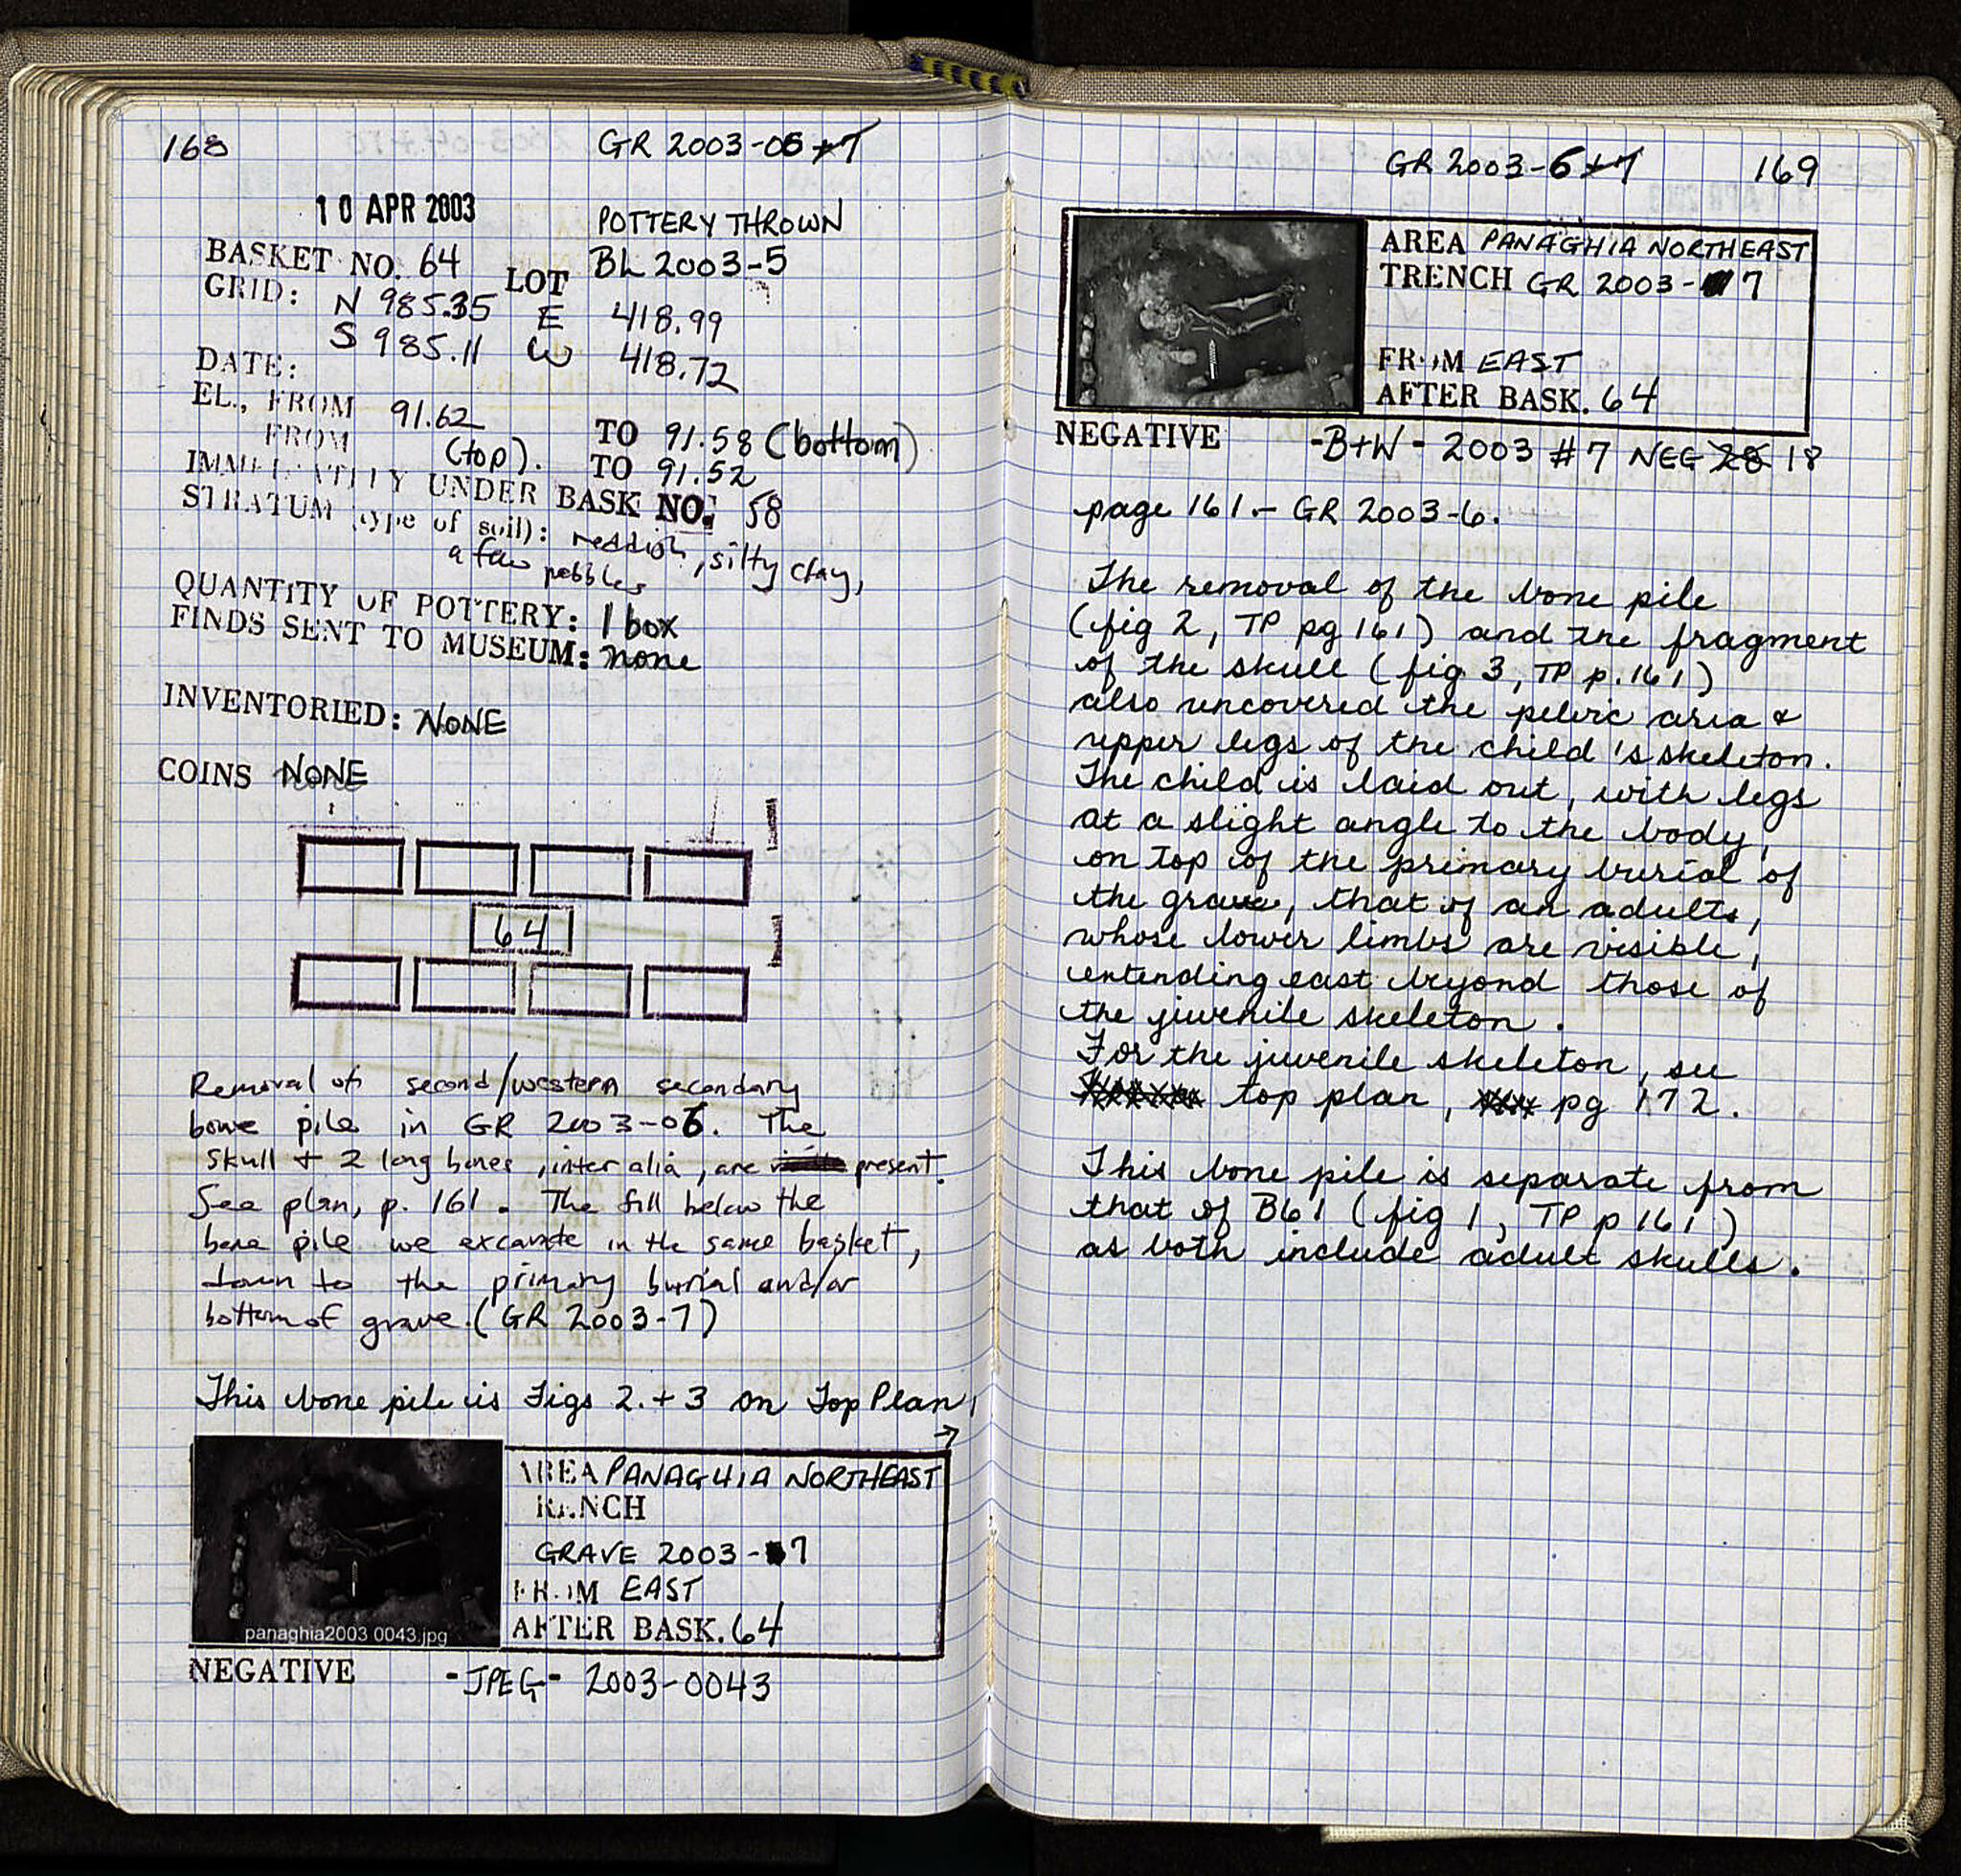 168
GR 2003-06+7
10 APR 2003
POTTERY THROWN
BASKET NO. 64 LOT BL 2003-5
GRID: N 985.35 E 418.99
S 985.11 W 418.72
DATE:
EL., FROM 91.62 TO 91.58 (bottom)
FROM (top). TO 91.52
IMMEDIATELY UNDER BASK NO. 58
STRATUM (type of soil): reddish, silty clay,
a few pebbles
QUANTITY OF POTTERY: 1 box
FINDS SENT TO MUSEUM: none
INVENTORIED: NONE
COINS NONE
64
Removal of second/western secondary
bone pile in GR 2003-06. The
skull + 2 long bones, inter alia, are present.
See plan, p. 161. The fill below the
bone pile we excavate in the same basket,
down to the primary burial and/or
bottom of grave. (GR 2003-7)
This bone pile is Figs 2.+3 on Top Plan,
→
panaghia2003 0043.jpg
AREA PANAGHIA NORTHEAST
TRENCH
GRAVE 2003-7
FROM EAST
AFTER BASK. 64
NEGATIVE -JPEG- 2003-0043
GR 2003-6+7 169
AREA PANAGHIA NORTHEAST
TRENCH GR 2003-7
FROM EAST
AFTER BASK. 64
NEGATIVE -B+W- 2003 #7 NEG 28 18
page 161 - GR 2003-6.
The removal of the bone pile
(fig 2, TP pg 161) and the fragment
of the skull (fig 3, TP p. 161)
also uncovered the pelvic area &
upper legs of the child's skeleton.
The child is laid out, with legs
at a slight angle to the body,
on top of the primary burial of
the grave, that of an adults,
whose lower limbs are visible,
extending east beyond those of
the juvenile skeleton.
For the juvenile skeleton, see
top plan, pg 172.
This bone pile is separate from
that of B61 (fig 1, TP p 161)
as both include adult skulls.